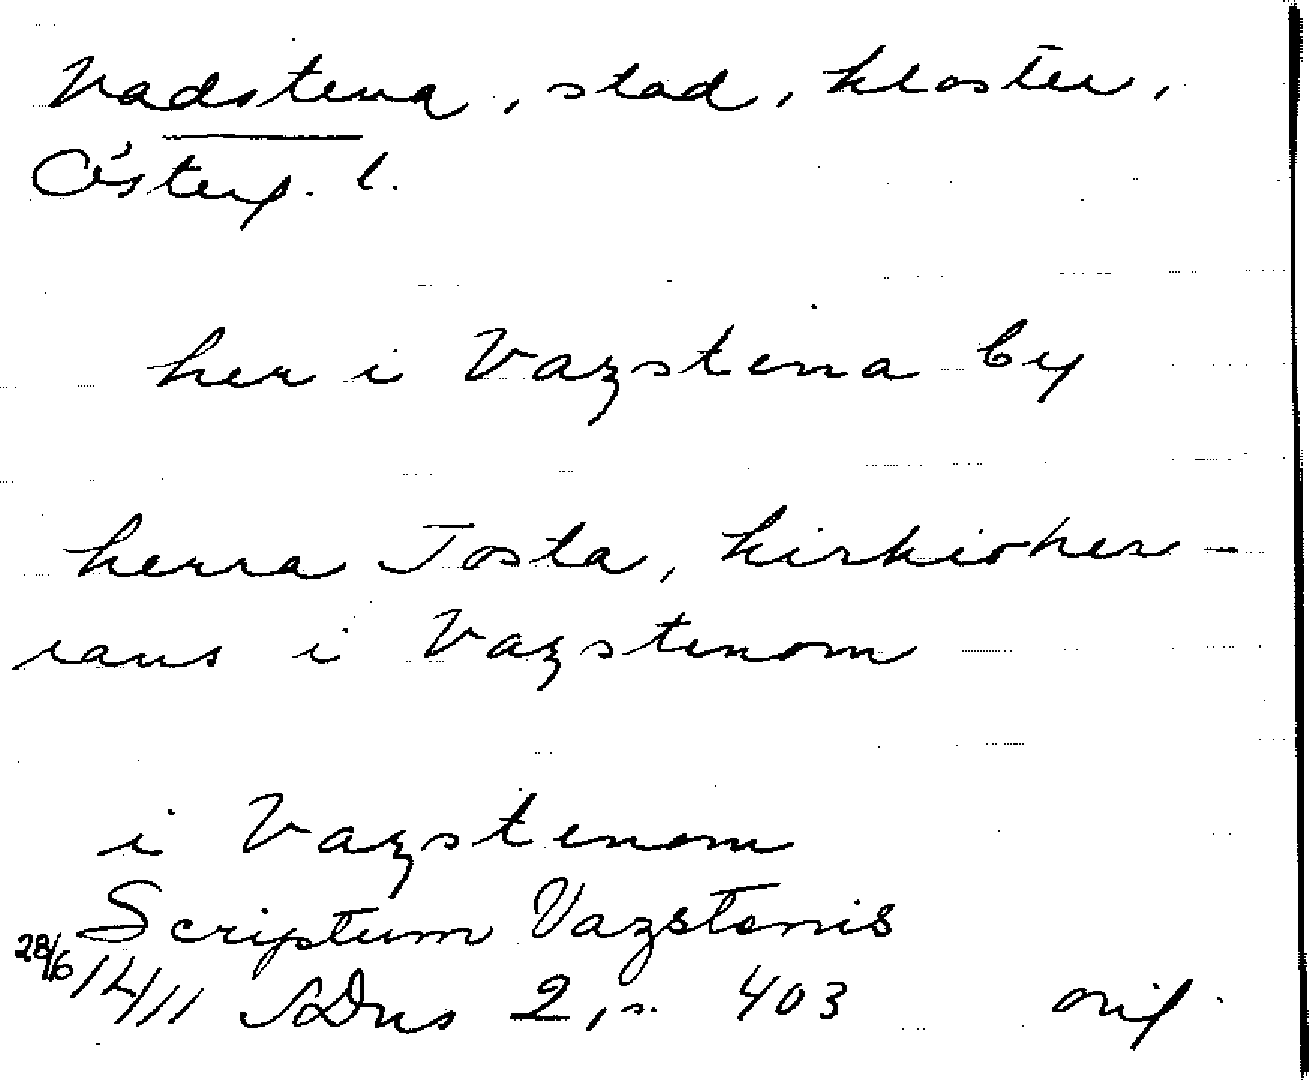 Vadstena, stad, kloster,
Österg. l.
her i Vazstena by
herra Josta, kirkioher-
rans i Vazstenom
i Vazstenom
Scriptum Vazstenis
28/6 1411 SDns 2, s. 403 orig.